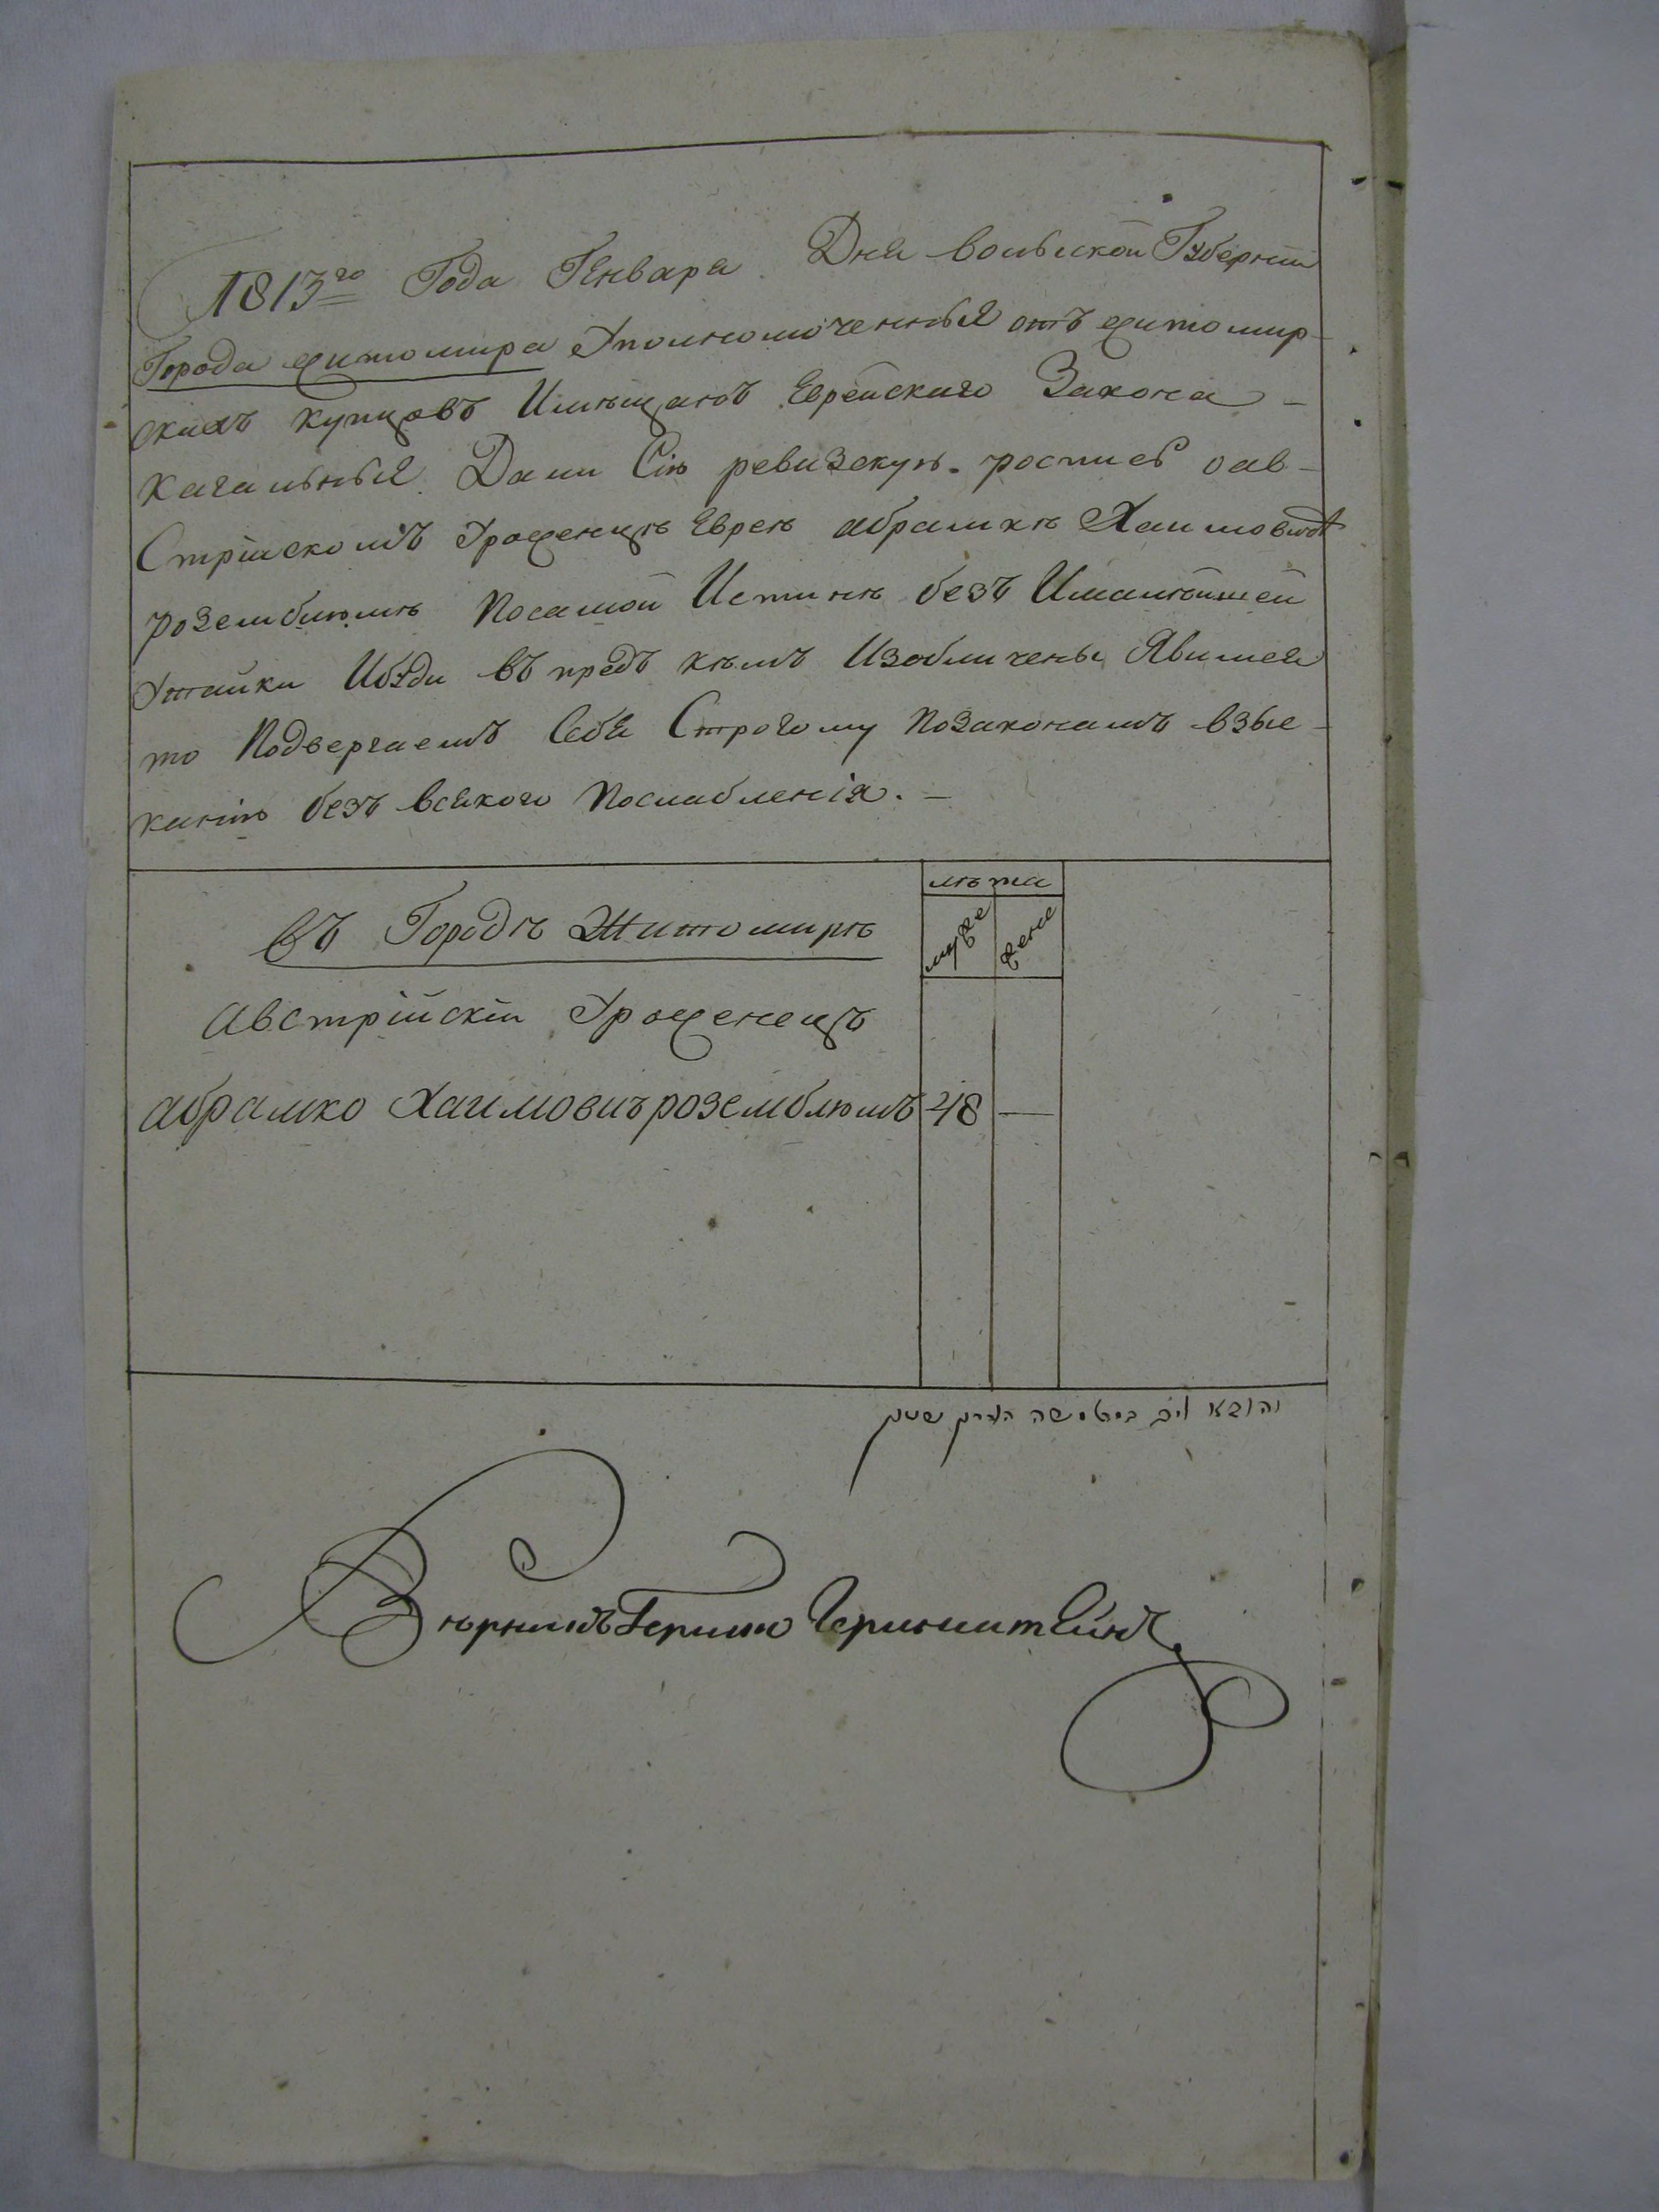 1813го Года Генваря Дня волынской Губерніи
Города житомира Уполномоченныя отъ житомир-
скихъ купцовъ Имѣщанъ Еврейскаго Закона -
Кагальныя Дали Сію ревизскую роспись оав-
Стрійскомъ Уроженцѣ Евреѣ абрамкѣ Хаимовичѣ
роземблюмѣ Посамой Истиннѣ безъ Ималѣйшей
Утайки Ибуди въ предъ кѣмъ Изобличены Явимся
то Подвергаемъ Себя Строгому Позаконамъ взыс-
канію безъ всякого Послабленія. -
въ Городѣ Житомирѣ
лѣта
муже
жено
Австрійскій Уроженецъ
абрамко Хаимовичъ роземблюмъ 48 —